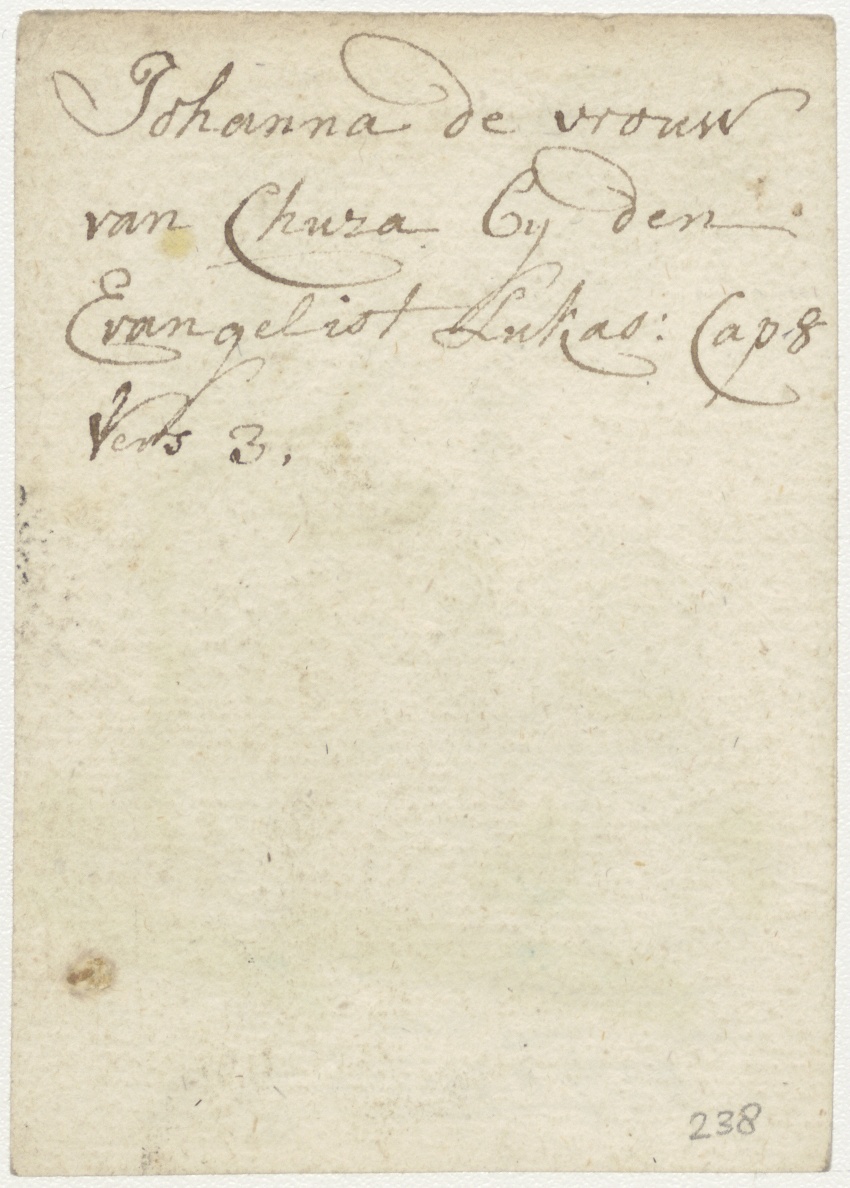 Johanna de vrouw
van Chuza by den
Evangelist Lukas: Cap 8
Vers 3.
238